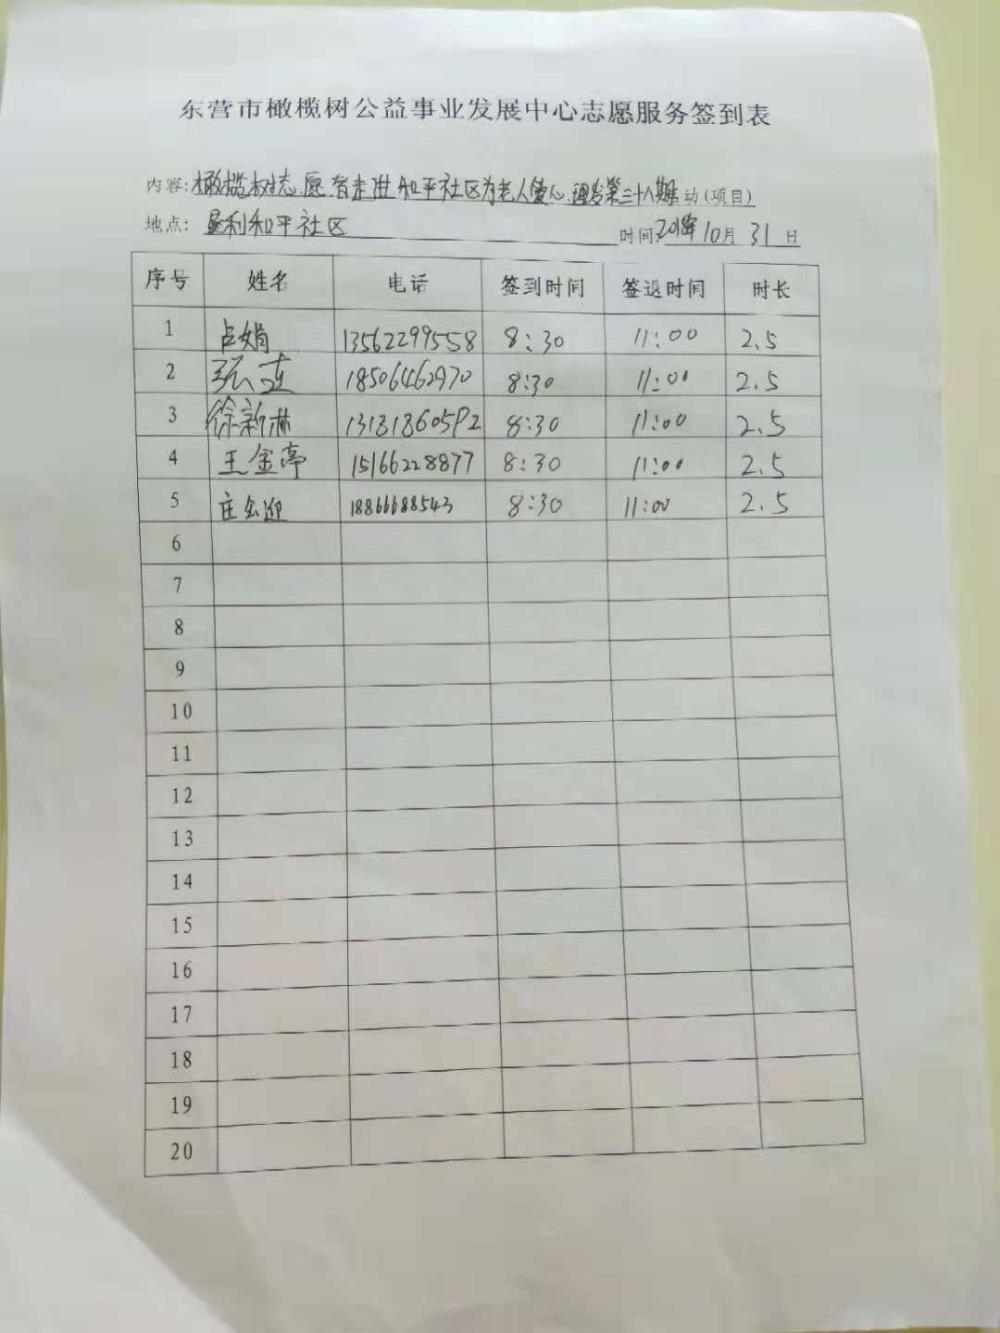 东营市橄榄树公益事业发展中心志愿服务签到表
内容:橄榄树志愿者走进和平社区为老人爱心理发第三十八期活动(项目)
地点: 垦利和平社区 时间 2018年10月31日
序号 姓名 电话 签到时间 签退时间 时长
1 卢娟 13562299558 8:30 11:00 2.5
2 张莲 18506462970 8:30 11:00 2.5
3 徐新淋 8:30 11:00 2.5
4 王金亭 15166228877 8:30 11:00 2.5
5 庄 迎 18866688543 8:30 11:00 2.5
6
7
8
9
10
11
12
13
14
15
16
17
18
19
20